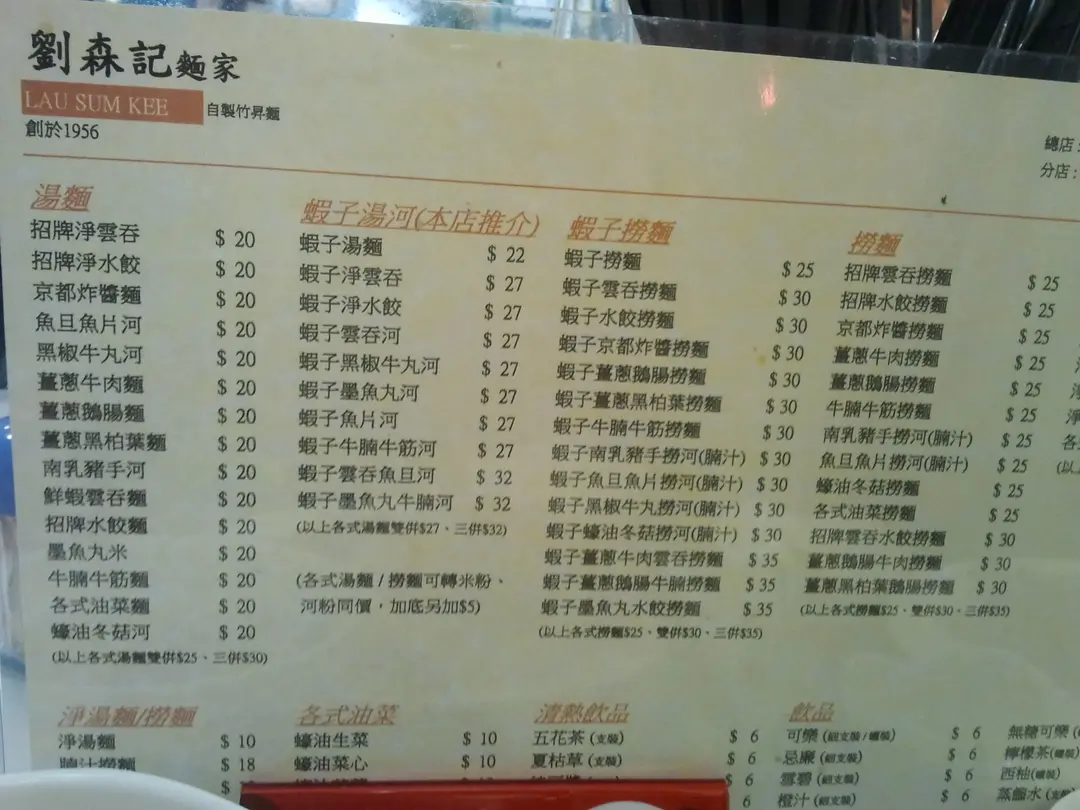 劉森記麵家
LAU SUM KEE 自製竹昇麵
創於1956
總店:
分店:
湯麵
招牌淨雲吞 $ 20
招牌淨水餃 $ 20
京都炸醬麵 $ 20
魚旦魚片河 $ 20
黑椒牛丸河 $ 20
薑蔥牛肉麵 $ 20
薑蔥鵝腸麵 $ 20
薑蔥黑柏葉麵 $ 20
南乳豬手河 $ 20
鮮蝦雲吞麵 $ 20
招牌水餃麵 $ 20
墨魚丸米 $ 20
牛腩牛筋麵 $ 20
各式油菜麵 $ 20
蠔油冬菇河 $ 20
(以上各式湯麵雙併$25、三併$30)
蝦子湯河(本店推介)
蝦子湯麵 $ 22
蝦子淨雲吞 $ 27
蝦子淨水餃 $ 27
蝦子雲吞河 $ 27
蝦子黑椒牛丸河 $ 27
蝦子墨魚丸河 $ 27
蝦子魚片河 $ 27
蝦子牛腩牛筋河 $ 27
蝦子雲吞魚旦河 $ 32
蝦子墨魚丸牛腩河 $ 32
(以上各式湯麵雙併$27、三併$32)
(各式湯麵 / 撈麵可轉米粉、
河粉同價，加底另加$5)
蝦子撈麵
蝦子撈麵 $ 25
蝦子雲吞撈麵 $ 30
蝦子水餃撈麵 $ 30
蝦子京都炸醬撈麵 $ 30
蝦子薑蔥鵝腸撈麵 $ 30
蝦子薑蔥黑柏葉撈麵 $ 30
蝦子牛腩牛筋撈麵 $ 30
蝦子南乳豬手撈河(腩汁) $ 30
蝦子魚旦魚片撈河(腩汁) $ 30
蝦子黑椒牛丸撈河(腩汁) $ 30
蝦子蠔油冬菇撈河(腩汁) $ 30
蝦子薑蔥牛肉雲吞撈麵 $ 35
蝦子薑蔥鵝腸牛腩撈麵 $ 35
蝦子墨魚丸水餃撈麵 $ 35
(以上各式撈麵$25、雙併$30、三併$35)
撈麵
招牌雲吞撈麵 $ 25
招牌水餃撈麵 $ 25
京都炸醬撈麵 $ 25
薑蔥牛肉撈麵 $ 25
薑蔥鵝腸撈麵 $ 25
牛腩牛筋撈麵 $ 25
南乳豬手撈河(腩汁) $ 25
魚旦魚片撈河(腩汁) $ 25
蠔油冬菇撈麵 $ 25
各式油菜撈麵 $ 25
招牌雲吞水餃撈麵 $ 30
薑蔥鵝腸牛肉撈麵 $ 30
薑蔥黑柏葉鵝腸撈麵 $ 30
(以上各式撈麵$25、雙併$30、三併$35)
淨湯麵/撈麵
淨湯麵 $ 10
腩汁撈麵 $ 18
各式油菜
蠔油生菜 $ 10
蠔油菜心 $ 10
清熱飲品
五花茶 (支裝) $ 6
夏枯草 (支裝) $ 6
飲品
可樂 (細支裝 / 罐裝) $ 6
忌廉 (細支裝) $ 6
雪碧 (細支裝) $ 6
橙汁 (細支裝) $ 6
無糖可樂
檸檬茶(罐裝)
西柚(罐裝)
蒸餾水